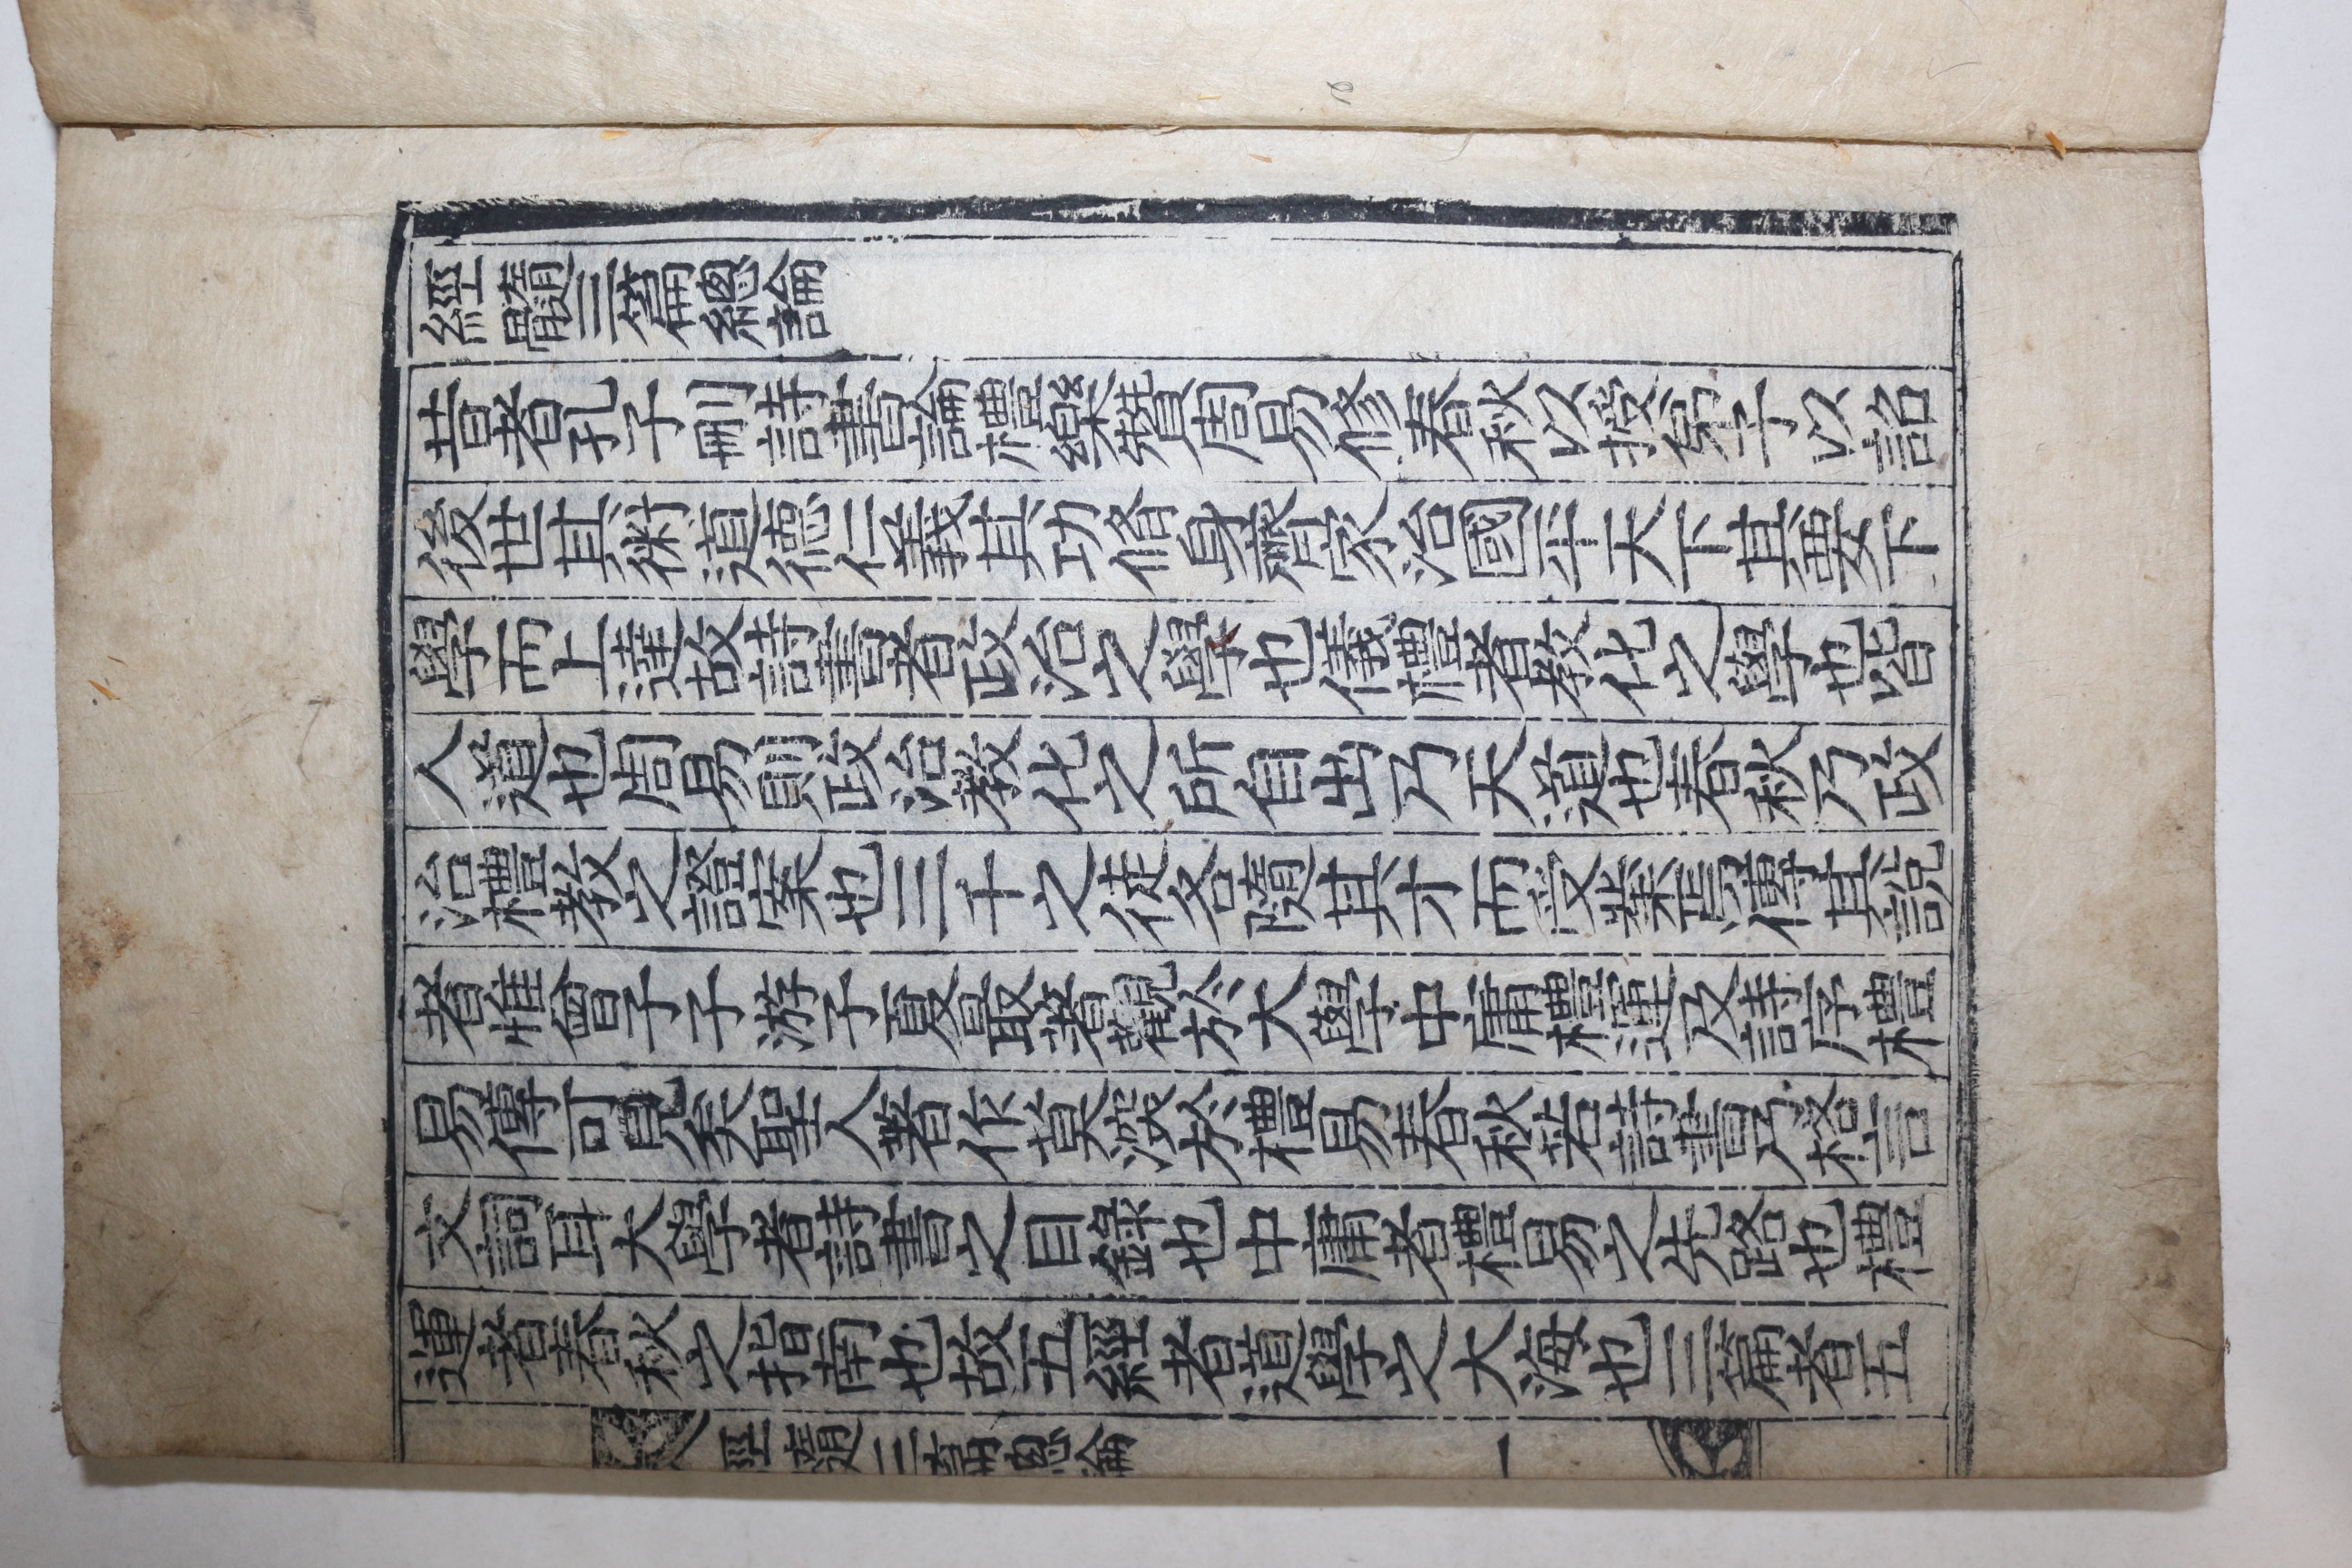 經髓三篇總論
昔者孔子刪詩書論禮樂贊周易修春秋以授弟子以詔
後世其術道德仁義其功脩身齊家治國平天下其要下
學而上達故詩書者政治之學也儀禮者敎化之學也皆
人道也周易則政治敎化之所自出乃天道也春秋乃政
治禮敎之證案也三千之徒各隨其才而受業焉傳其說
者惟曾子子游子夏最著觀於大學中庸禮運及詩序禮
易傳可見矣聖人著作莫盛於禮易春秋若詩書乃格言
文詞耳大學者詩書之目錄也中庸者禮易之先路也禮
運者春秋之指南也故五經者道學之大海也三篇者五
經髓三篇總論 一